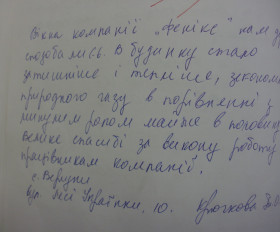 Вікна компанії "Фенікс" нам
сподобались. В будинку стало
затишніше і тепліше, економ
природного газу в порівнянні з
минулим роком майже в половину
велике спасибі за виконану роботу
працівникам компанії.
с.
вул. Лесі Українки, 10.